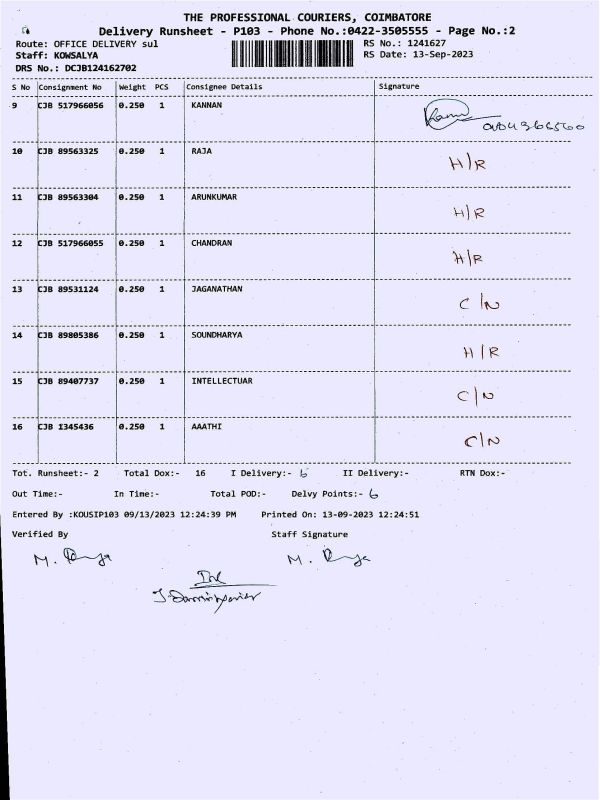 THE PROFESSIONAL COURIERS, COIMBATORE
Delivery Runsheet - P103 - Phone No.:0422-3505555 - Page No.:2
Route: OFFICE DELIVERY sul RS No.: 1241627
Staff: KOWSALYA RS Date: 13-Sep-2023
DRS No.: DCJB124162702
S No Consignment No Weight PCS Consignee Details Signature
9 CJB 517966056 0.250 1 KANNAN
10 CJB 89563325 0.250 1 RAJA H/R
11 CJB 89563304 0.250 1 ARUNKUMAR H/R
12 CJB 517966055 0.250 1 CHANDRAN H/R
13 CJB 89531124 0.250 1 JAGANATHAN C/N
14 CJB 89805386 0.250 1 SOUNDHARYA H/R
15 CJB 89407737 0.250 1 INTELLECTUAR C/N
16 CJB 1345436 0.250 1 AAATHI C/N
Tot. Runsheet:- 2 Total Dox:- 16 I Delivery:- 6 II Delivery:- RTN Dox:-
Out Time:- In Time:- Total POD:- Delvy Points:- 6
Entered By :KOUSIP103 09/13/2023 12:24:39 PM Printed On: 13-09-2023 12:24:51
Verified By Staff Signature